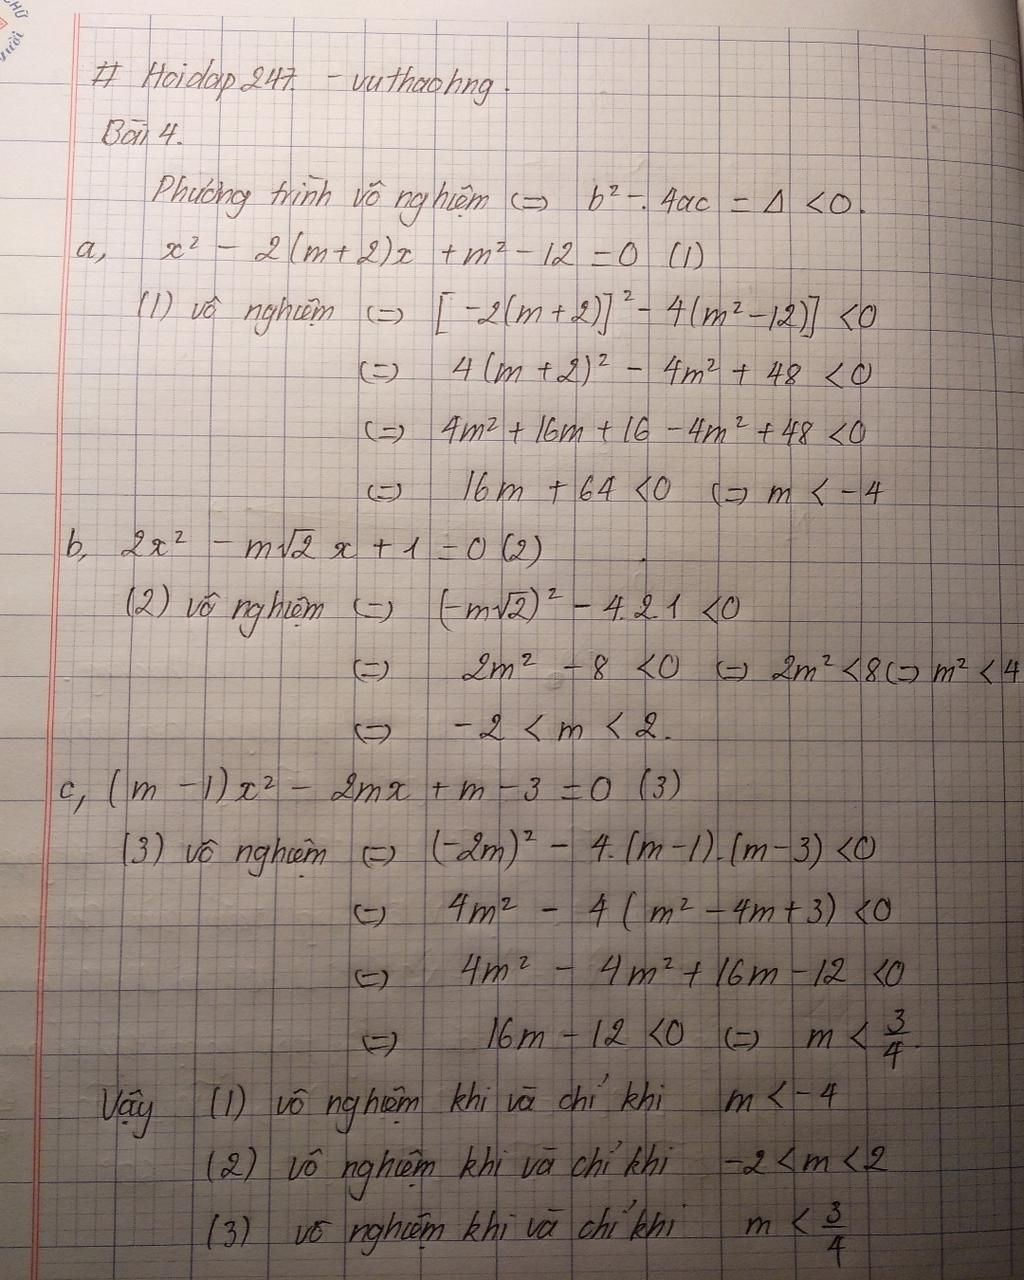 CHỮ
NGƯỜI
# Hoidap247. - vuthaohng.
Bài 4.
Phương trình vô nghiệm <=> b² - 4ac = Δ < 0.
a, x² - 2(m+2)x + m² - 12 = 0 (1)
(1) vô nghiệm <=> [-2(m+2)]² - 4(m²-12)] < 0
<=> 4(m+2)² - 4m² + 48 < 0
<=> 4m² + 16m + 16 - 4m² + 48 < 0
<=> 16m + 64 < 0 <=> m < -4
b, 2x² - m√2 x + 1 = 0 (2)
(2) vô nghiệm <=> (-m√2)² - 4.2.1 < 0
<=> 2m² - 8 < 0 <=> 2m² < 8 <=> m² < 4
<=> -2 < m < 2.
c, (m-1)x² - 2mx + m - 3 = 0 (3)
(3) vô nghiệm <=> (-2m)² - 4.(m-1).(m-3) < 0
<=> 4m² - 4(m² - 4m + 3) < 0
<=> 4m² - 4m² + 16m - 12 < 0
<=> 16m - 12 < 0 <=> m < 3/4.
Vậy (1) vô nghiệm khi và chỉ khi m < -4
(2) vô nghiệm khi và chỉ khi -2 < m < 2
(3) vô nghiệm khi và chỉ khi m < 3/4